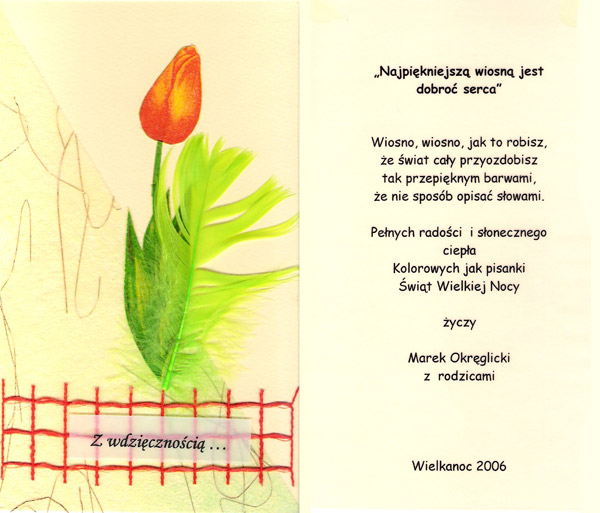 Z wdzięcznością ...
„Najpiękniejszą wiosną jest
dobroć serca”
Wiosno, wiosno, jak to robisz,
że świat cały przyozdobisz
tak przepięknym barwami,
że nie sposób opisać słowami.
Pełnych radości i słonecznego
ciepła
Kolorowych jak pisanki
Świąt Wielkiej Nocy
życzy
Marek Okręglicki
z rodzicami
Wielkanoc 2006